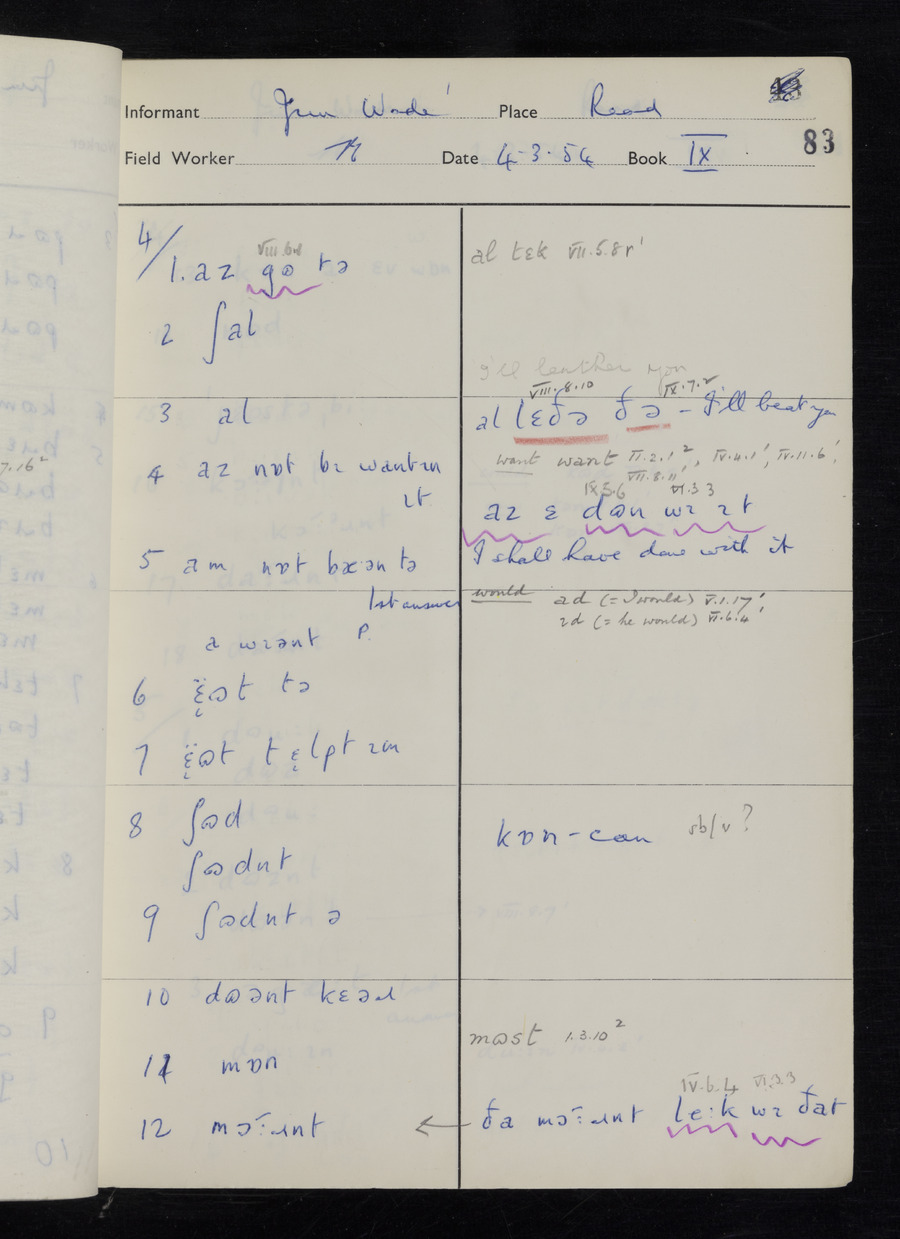 Informant Place Read
83
Field Worker Date 4-3-54 Book IX
4/
VIII.6.1
1. az gɷ tə
al tɛk VII.5.8r'
2 ʃal
I'll leather you
VIII.8.10 IX.7.2
3 al
al lɛðə ðə - I'll beat you
4 az nɒt bɪ wantɪn ɪt
want want VI.2.1², IV.4.1', IV.11.6',
VII.8.11,
IX.5.6 VI.3.3
az ɛ dɷn wɪ ɪt
I shall have done with it
5 am nɒt bæ:ən tə
1st answer
would ad (= I would) V.1.17',
ɪd (= he would) VI.6.4
a wɪənt P.
6 ɛ̈ɷt tə
7 ɛ̈ɷt tɛlpt ɪm
8 ʃɷd
ʃɷdnt
kɒn - can sb/v?
9 ʃɷdnt ə
10 dɷənt kɛəɹ
mɷst 1.3.10²
11 mɒn
IV.6.4 VI.3.3
12 mɔ:ɹnt
← ða mɔ:ɹnt le:k wɪ ðat